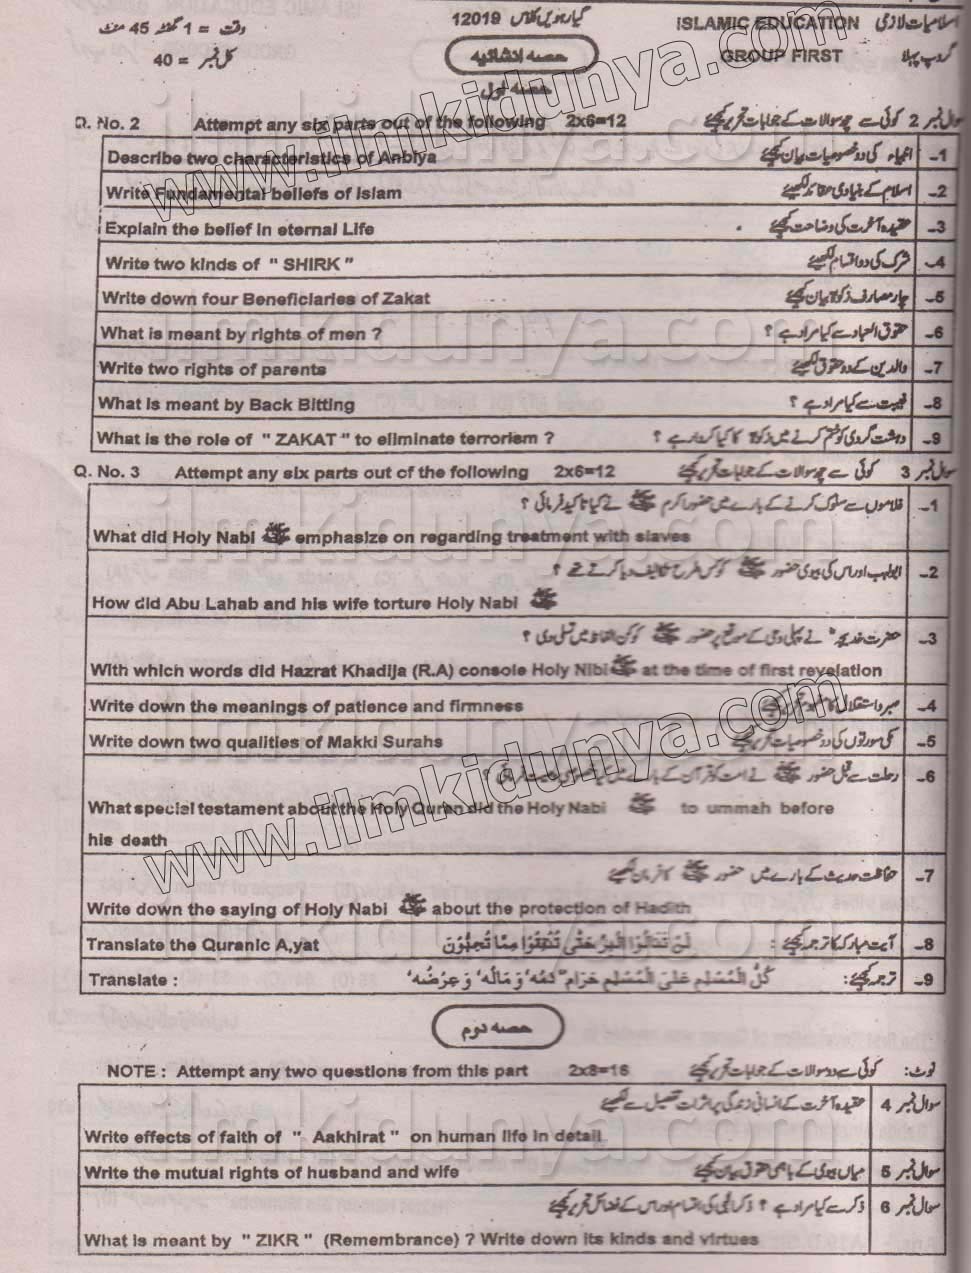 وقت = 1 گھنٹہ 45 منٹ گیارہویں کلاس 12019 ISLAMIC EDUCATION اسلامیات لازمی
کل نمبر = 40 حصہ انشائیہ GROUP FIRST گروپ پہلا
حصہ اول
Q. No. 2 Attempt any six parts out of the following 2x6=12 سوال نمبر 2 کوئی سے چھ سوالات کے جوابات تحریر کیجئے
Describe two characteristics of Anbiya انبیاء کی دو خصوصیات بیان کیجئے -1
Write Fundamental beliefs of Islam اسلام کے بنیادی عقائد لکھیئے -2
Explain the belief in eternal Life عقیدہ آخرت کی وضاحت کیجئے -3
Write two kinds of " SHIRK " شرک کی دو اقسام لکھیئے -4
Write down four Beneficiaries of Zakat چار مصارف زکوٰۃ بیان کیجئے -5
What is meant by rights of men ? حقوق العباد سے کیا مراد ہے ؟ -6
Write two rights of parents والدین کے دو حقوق لکھیئے -7
What is meant by Back Bitting غیبت سے کیا مراد ہے ؟ -8
What is the role of " ZAKAT " to eliminate terrorism ? دہشت گردی کو ختم کرنے میں زکوٰۃ کا کیا کردار ہے ؟ -9
Q. No. 3 Attempt any six parts out of the following 2x6=12 سوال نمبر 3 کوئی سے چھ سوالات کے جوابات تحریر کیجئے
غلاموں سے سلوک کرنے کے بارے میں حضور اکرم ﷺ نے کیا تاکید فرمائی ؟ -1
What did Holy Nabi ﷺ emphasize on regarding treatment with slaves
ابولہب اور اس کی بیوی حضور ﷺ کو کس طرح تکالیف دیا کرتے تھے ؟ -2
How did Abu Lahab and his wife torture Holy Nabi ﷺ
حضرت خدیجہؓ نے پہلی وحی کے موقع پر حضور ﷺ کو کن الفاظ میں تسلی دی ؟ -3
With which words did Hazrat Khadija (R.A) console Holy Nibi ﷺ at the time of first revelation
Write down the meanings of patience and firmness صبر و استقلال کا تحریر کیجئے -4
Write down two qualities of Makki Surahs مکی سورتوں کی دو خصوصیات تحریر کیجئے -5
رحلت سے قبل حضور ﷺ نے امت کو قرآن کے بارے میں کیا خصوصی وصیت فرمائی ؟ -6
What special testament about the Holy Quran did the Holy Nabi ﷺ to ummah before
his death
حفاظت حدیث کے بارے میں حضور ﷺ کا فرمان لکھیئے -7
Write down the saying of Holy Nabi ﷺ about the protection of Hadith
Translate the Quranic A,yat لَنْ تَنَالُوا الْبِرَّ حَتّٰى تُنْفِقُوْا مِمَّا تُحِبُّوْنَ آیت مبارکہ کا ترجمہ کیجئے : -8
Translate : كُلُّ الْمُسْلِمِ عَلَى الْمُسْلِمِ حَرَامٌ دَمُهٗ وَ مَالُهٗ وَ عِرْضُهٗ ترجمہ کیجئے : -9
حصہ دوم
NOTE : Attempt any two questions from this part 2x8=16 نوٹ : کوئی سے دو سوالات کے جوابات تحریر کیجئے
عقیدہ آخرت کے انسانی زندگی پر اثرات تفصیل سے لکھیئے سوال نمبر 4
Write effects of faith of " Aakhirat " on human life in detail
Write the mutual rights of husband and wife میاں بیوی کے باہمی حقوق بیان کیجئے سوال نمبر 5
ذکر سے کیا مراد ہے ؟ ذکر الٰہی کی اقسام اور اس کے فضائل تحریر کیجئے سوال نمبر 6
What is meant by " ZIKR " (Remembrance) ? Write down its kinds and virtues
www.ilmkidunya.com
www.ilmkidunya.com
ilmkidunya.com
ilmkidunya.com
ilmkidunya.com
ilmkidunya.com
ilmkidunya.com
ilmkidunya.com